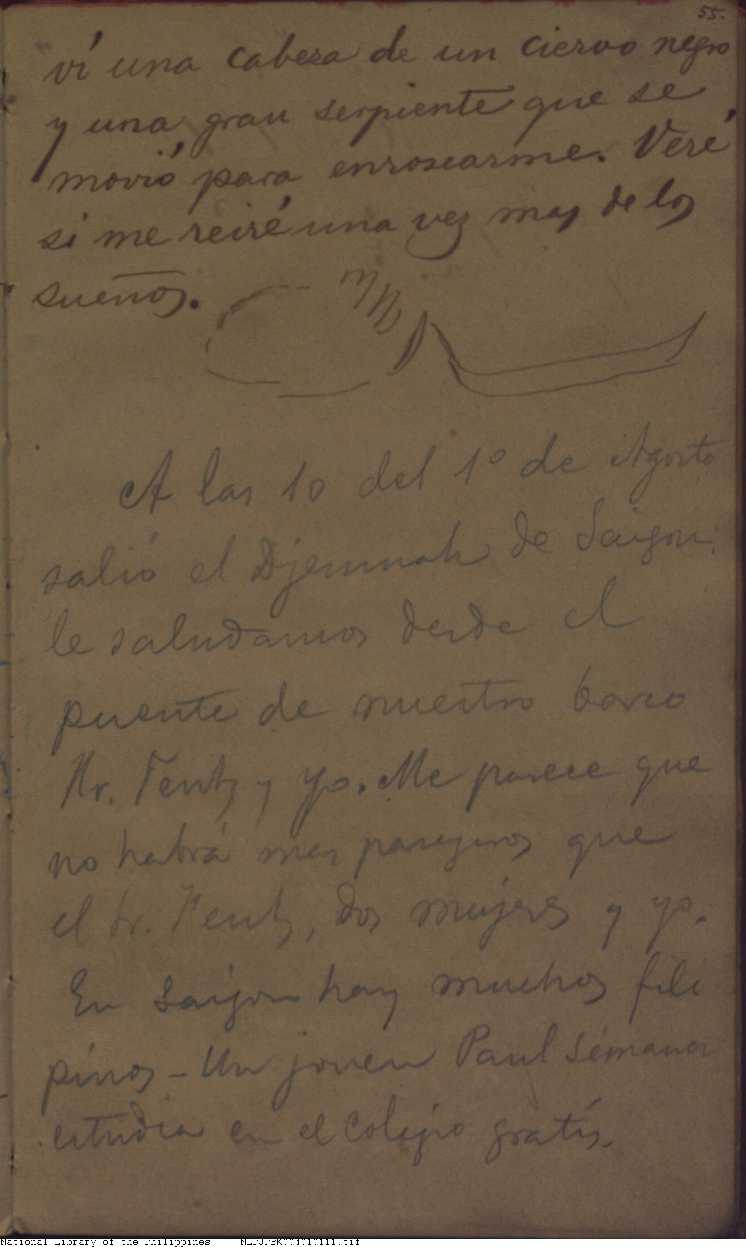 55.
ví una cabeza de un ciervo negro
y una gran serpiente que se
movió para enroscarme. Veré
si me reiré una vez mas de los
sueños.
A las 10 del 1º de Agosto
salió el Djemnah de Saigon:
le saludamos desde el
puente de nuestro barco
Mr. Fentz y yo. Me parece que
no habrá mas pasajeros que
el Sr. Fentz, dos mujeres y yo.
En Saigon hay muchos fili
pinos - Un joven Paul
estudia en el Colegio gratis.
National Library of the Philippines